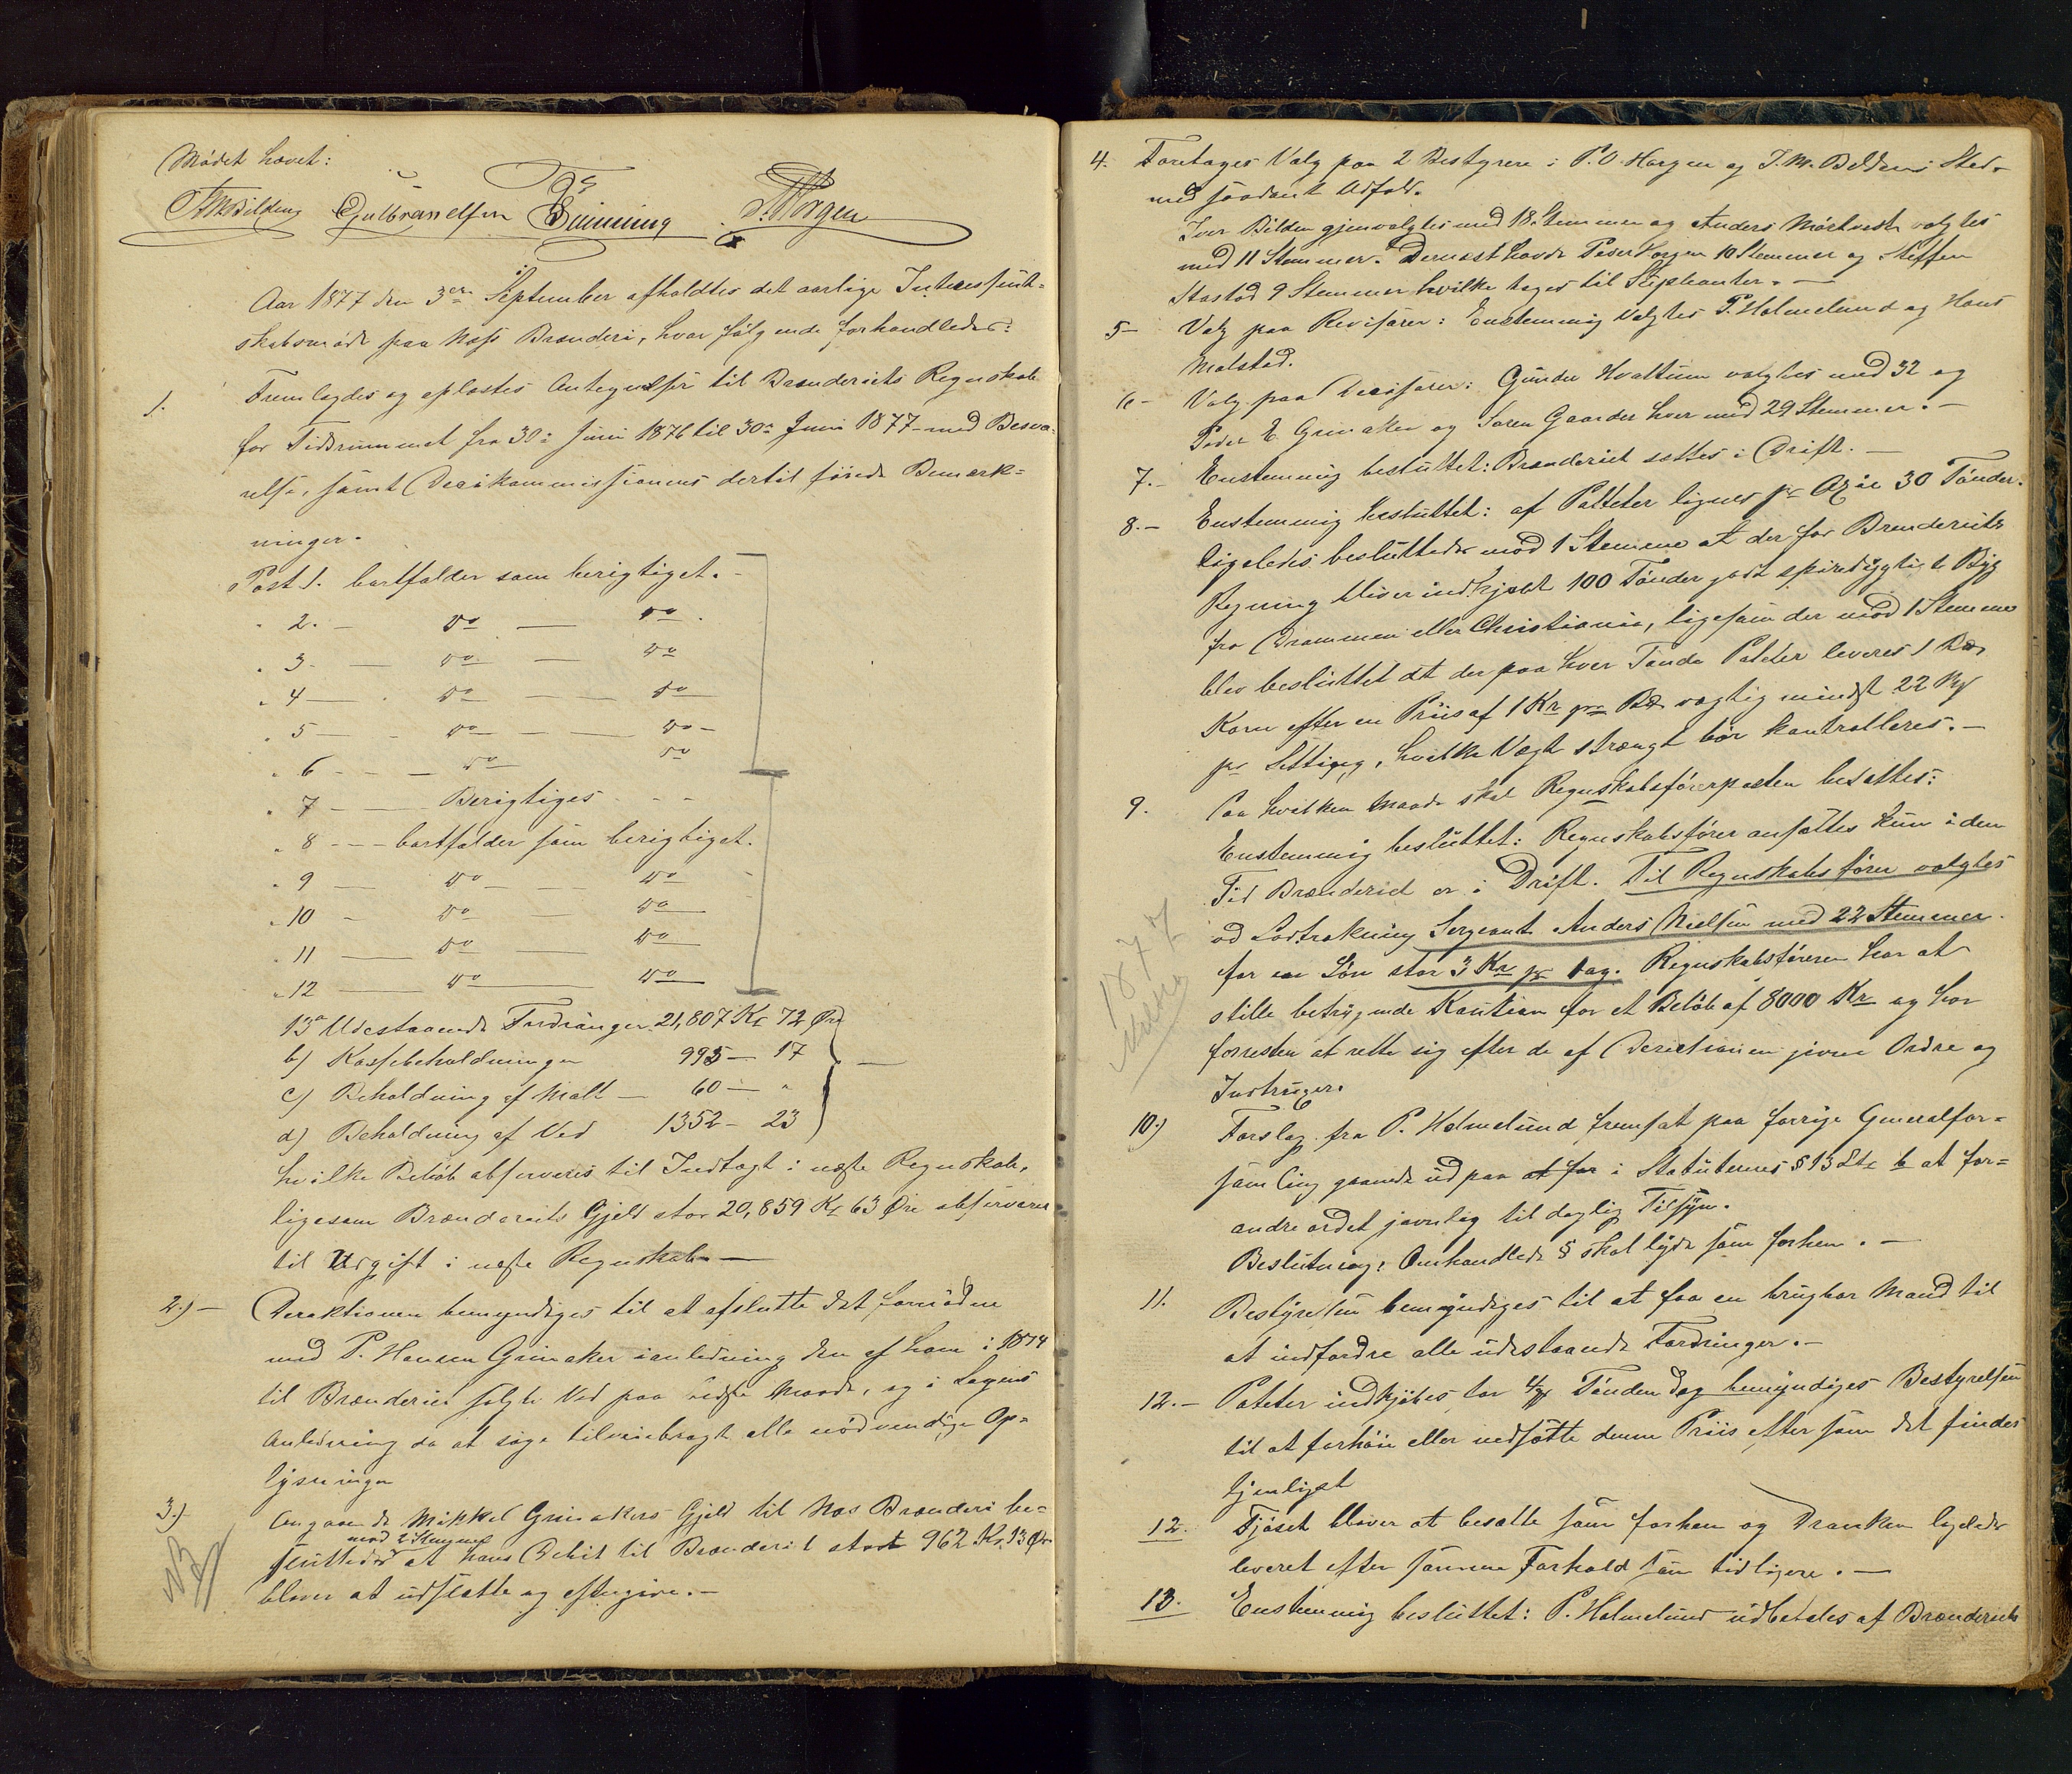 Mödet hævet:
Gulbrandsen Horgen
Aar 1877 den 3die September afholdtes det aarlige Interessent-
skabsmöde paa Næss Brænderi, hvor fölgende forhandledes:
1. Fremlagdes og oplæstes Antegnelser til Brænderiets Regnskab
for Tidsrummet fra 30te Juni 1876 til 30te Juni 1877 med Besva-
relse, samt Decisionmmissionens dertil föiede Bemærk-
ninger.
Post 1. bortfalder som berigtiget. -
" 2. - do - do.
" 3. - do - do
" 4 - do - do
" 5 - do - do -
" 6 - - do do
" 7 - Berigtiges - -
" 8 - - - bortfalder som berigtiget.
" 9 - do - do
" 10 - do - do
" 11 - do - do
" 12 - do - do
13a Udestaaende Fordringer 21,807 Kr 72 Öre
b) Kassebeholdningen 995 - 17
c) Beholdning af Malt - 60 - "
d) Beholdning af Ved 1352 - 23
hvilke Beløb observeres til Indtægt i næste Regnskab,
ligesom Brænderiets Gjeld stor 20,859 Kr 63 Öre observeres
til Udgift i næste Regnskab -
2.) - Direktionen bemyndiges til at afslutte det fornödne
med P. Hansen Grinaker i anledning den af ham i 1874
til Brænderiet solgte Ved paa bedste Maade, og i Sagens
Anledning da at söge tilveiebragt alle nödvendige Op-
lysninger
3.) Angaaende Mikkel Grinakers Gjeld til Næs Brænderi be-
mod 2 Stemmer
sluttedes at hans Debit til Brænderiet stort 962 Kr. 13 Öre
bliver at udslette og eftergive. -
NB
4. Foretages Valg paa 2 Bestyrere i P. O. Horgen og I. M. Bildens Sted
med saadant Udfald.
Iver Bilden gjenvalgtes med 18 Stemmer og Anders Mörtvedt valgtes
med 11 Stemmer. Dernæst havde Peder Horgen 10 Stemmer og Steffen
Stastad 9 Stemmer hvilke tages til Supleanter. -
5 - Valg paa Revisorer: Enstemmig valgtes P. Holmelund og Hans
Molstad.
6 - Valg paa Decisorer: Gunder Hvattum valgtes med 32 og
Peder E. Grinaker og Søren Gaarder hver med 29 Stemmer. -
7. - Enstemmig besluttet: Brænderiet sættes i Drift. -
8. - Enstemmig besluttet: af Potteter lignes pr Axie 30 Tönder.
ligeledes besluttedes mod 1 Stemme at der for Brænderiets
Regning bliver indkjøbt 100 Tönder godt spiredygtigt Byg
fra Drammen eller Christiania, ligesom der mod 1 Stemme
blev besluttet at der paa hver Tönde Poteter leveres 1 Bd
Korn efter en Priis af 1 Kr pr Bd vægtig mindst 22
pr Setting, hvilke Vægt strængt bör kontrolleres. -
9. Paa hvilken Maade skal Regnskabsförerposten besættes:
Enstemmig besluttet: Regnskabsförer ansættes kun i den
Tid Brænderiet er i Drift. Til Regnskabsförer valgtes
ved Lodtrækning Sergeant Anders Nielsen med 22 Stemmer
for en Lön stor 3 Kr pr Dag. Regnskabsföreren har at
stille betryggende Kaution for et Belöb af 8000 Kr og har
forresten at rette sig efter de af Direktionen givne Ordre og
Instruxer.
1877
10.) Forslag fra P. Holmelund fremsat paa forrige Generalfor-
samling gaaende ud paa at for i Statuternes § 13 Litr b at for-
andre ordet jævnlig til daglig Tilsyn.
Beslutning: Omhandlede § skal lyde som forhen. -
11. Bestyrelsen bemyndiges til at faa en brugbar Mand til
at indfordre alle udestaaende Fordringer. -
12. - Poteter indkjöbes for Tönden dog bemyndiges Bestyrelsen
til at forhöie eller nedsætte denne Priis eftersom det findes
tjenligst
12. Fjöset bliver at besætte som forhen og Dranken ligeledes
leveret efter samme Forhold som tidligere. -
13. Enstemmig besluttet: P. Holmelund udbetales af Brænderiets